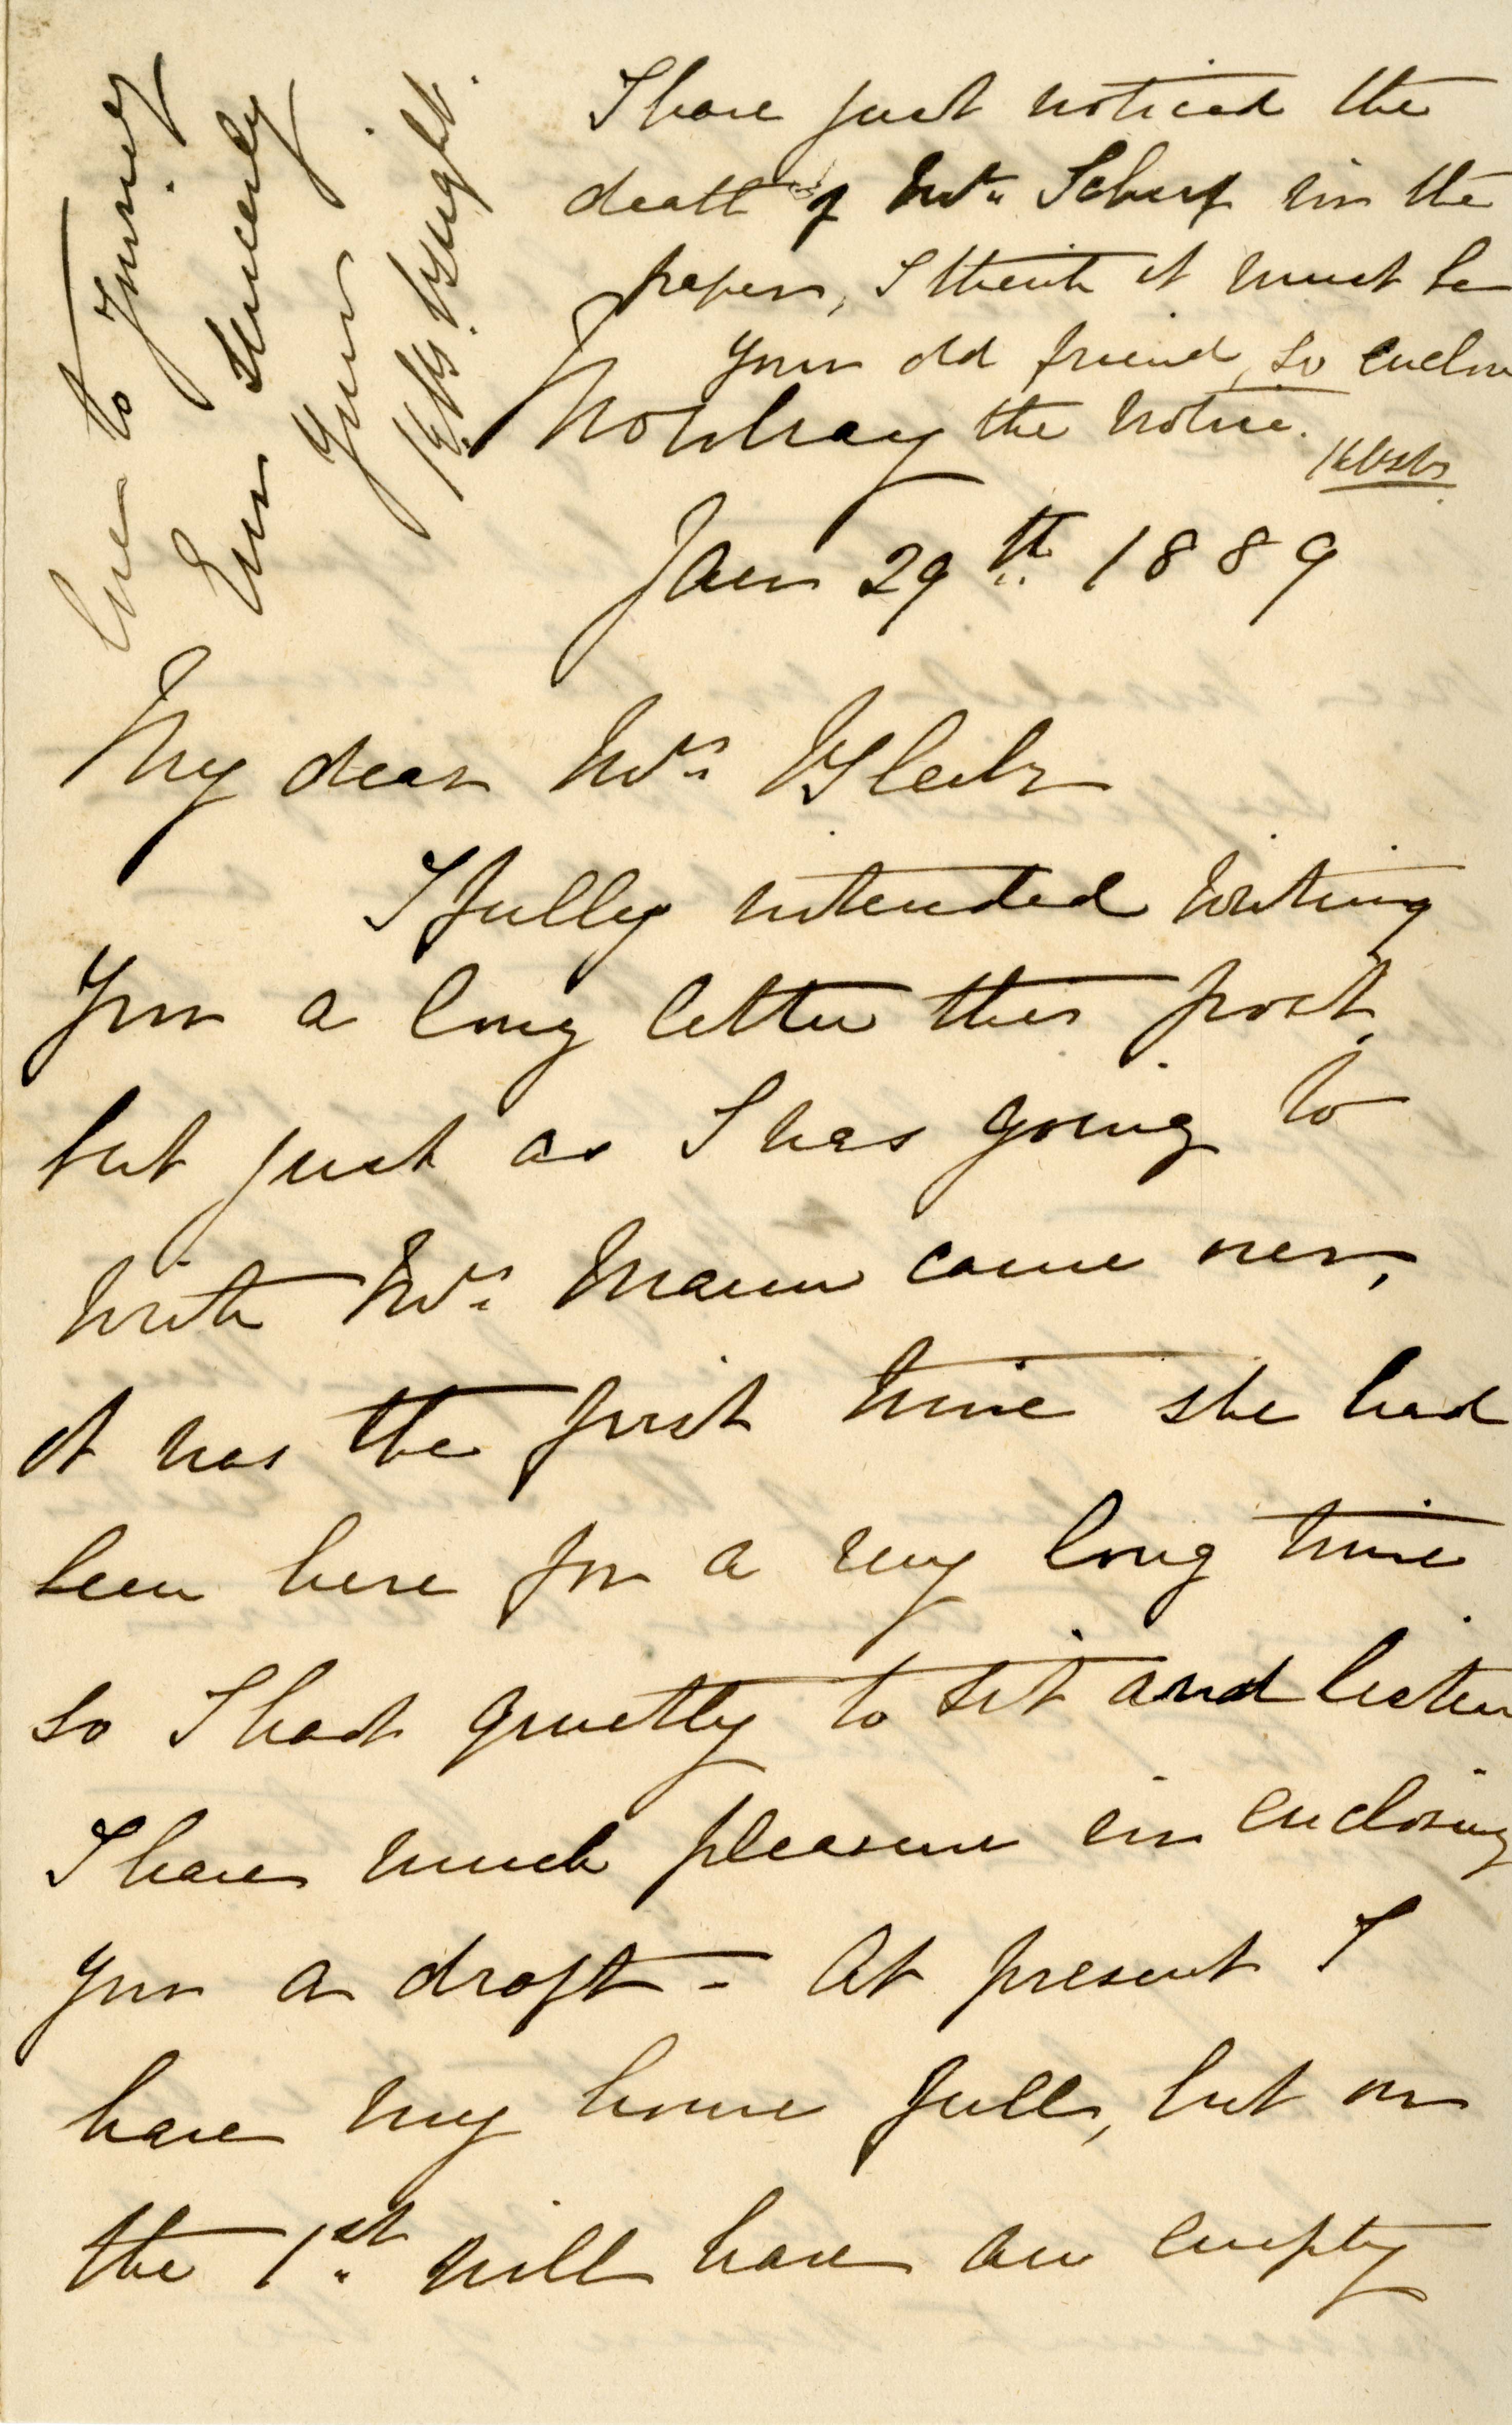 I have just noticed the
death of Mr. Scharf in the
paper, I think it must be
your old friend, so enclose
the notice.
Mowbray
Jan 29th 1889
My dear Mrs
I fully intended writing
you a long letter this post,
but just as I was going to
write Mrs Mann came over,
it was the first time she had
been here for a very long time
so I had quietly to sit and listen
I have much pleasure in enclosing
you a draft - At present I
have my house full, but on
the 1st will have an empty
love to
Ever Sincerely
Yours
Wright.